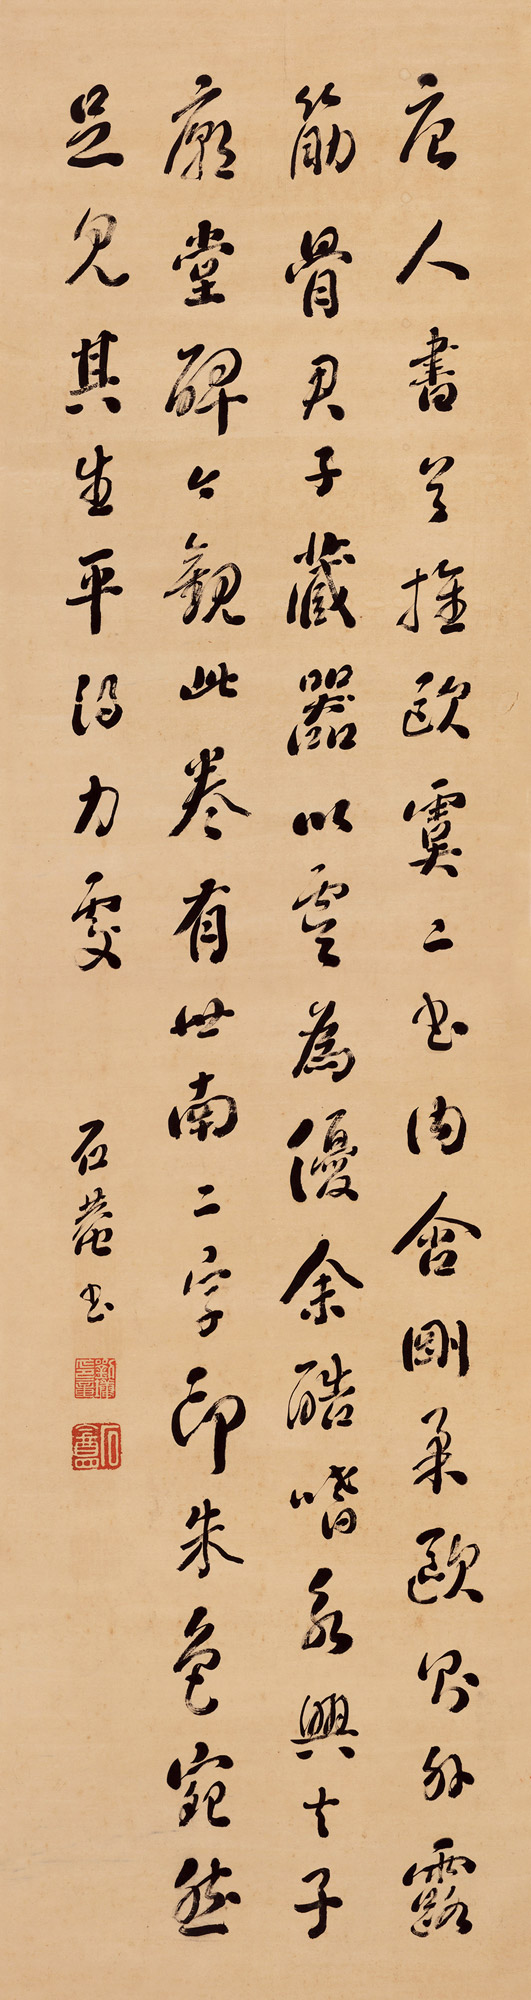 唐人書首推歐虞二書內含剛柔歐則外露
筋骨君子藏器以虞為優余酷嗜永興夫子
廟堂碑今觀此卷有世南二字印朱色宛然
足見其生平得力處
石菴書
劉墉之印
石菴